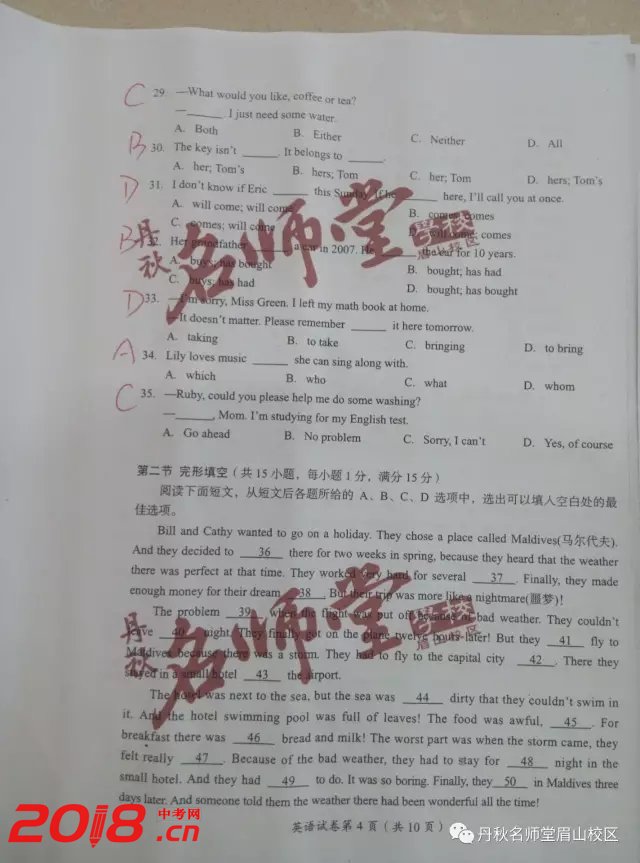 C 29. —What would you like, coffee or tea?
—______. I just need some water.
A. Both B. Either C. Neither D. All
B 30. The key isn't ______. It belongs to ______.
A. her; Tom's B. hers; Tom C. her; Tom D. hers; Tom's
D 31. I don't know if Eric ______ this Sunday. If he ______ here, I'll call you at once.
A. will come; will come B. comes; comes
C. comes; will come D. will come; comes
B 32. Her grandfather ______ a car in 2007. He ______ the car for 10 years.
A. buys; has bought B. bought; has had
C. buys; has had D. bought; has bought
D 33. —I'm sorry, Miss Green. I left my math book at home.
—It doesn't matter. Please remember ______ it here tomorrow.
A. taking B. to take C. bringing D. to bring
A 34. Lily loves music ______ she can sing along with.
A. which B. who C. what D. whom
C 35. —Ruby, could you please help me do some washing?
—______, Mom. I'm studying for my English test.
A. Go ahead B. No problem C. Sorry, I can't D. Yes, of course
第二节 完形填空（共 15 小题，每小题 1 分，满分 15 分）
阅读下面短文，从短文后各题所给的 A、B、C、D 选项中，选出可以填入空白处的最
佳选项。
Bill and Cathy wanted to go on a holiday. They chose a place called Maldives(马尔代夫).
And they decided to 36 there for two weeks in spring, because they heard that the weather
there was perfect at that time. They worked very hard for several 37 . Finally, they made
enough money for their dream 38 . But their trip was more like a nightmare(噩梦)!
The problem 39 when the flight was put off because of bad weather. They couldn't
leave 40 night! They finally got on the plane twelve hours later! But they 41 fly to
Maldives because there was a storm. They had to fly to the capital city 42 . There they
stayed in a small hotel 43 the airport.
The hotel was next to the sea, but the sea was 44 dirty that they couldn't swim in
it. And the hotel swimming pool was full of leaves! The food was awful, 45 . For
breakfast there was 46 bread and milk! The worst part was when the storm came, they
felt really 47 . Because of the bad weather, they had to stay for 48 night in the
small hotel. And they had 49 to do. It was so boring. Finally, they 50 in Maldives three
days later. And someone told them the weather there had been wonderful all the time!
英语试卷第 4 页（共 10 页）
丹秋
名师堂
眉山校区
丹秋
名师堂
眉山校区
2018.cn
中考网
丹秋名师堂眉山校区